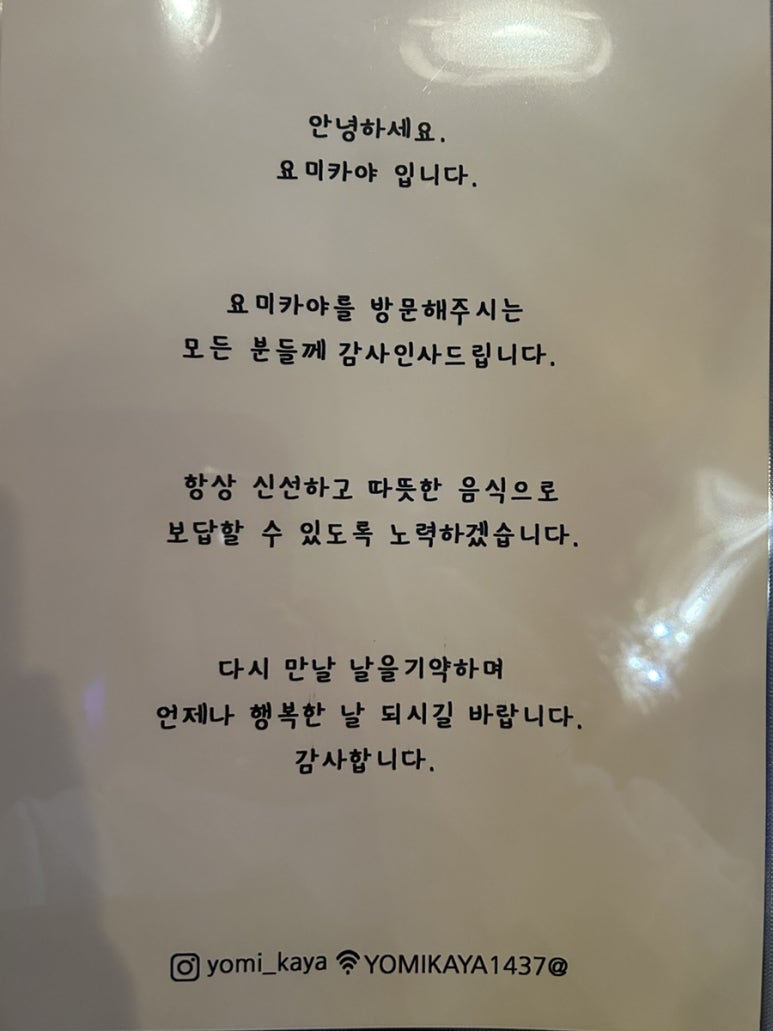 안녕하세요.
요미카야 입니다.
요미카야를 방문해주시는
모든 분들께 감사인사드립니다.
항상 신선하고 따뜻한 음식으로
보답할 수 있도록 노력하겠습니다.
다시 만날 날을기약하며
언제나 행복한 날 되시길 바랍니다.
감사합니다.
yomi_kaya YOMIKAYA1437@